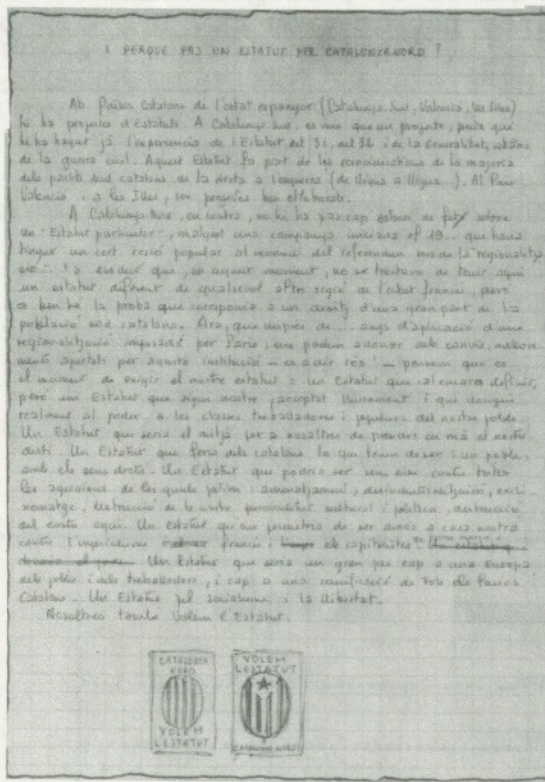 I PERQUE PAS UN ESTATUT PER CATALUNYA-NORD ?
Als Països Catalans de l'estat espanyol (Catalunya-Sud, Valencia, les Illes)
hi ha projectes d'Estatuts. A Catalunya-Sud, es mes que un projecte, puix que
hi ha hagut ja l'experiencia de l'Estatut del 31, del 32 i de la Generalitat, abans
de la guerra civil. Aquest Estatut fa part de les reivindicacions de la majoria
dels partits sud catalans de la dreta a l'esquerra (de lliga a lliga...). Al Pais
Valencia i a les Illes, son projectes ben elaborats.
A Catalunya-Nord, en contra, no hi ha pas cap estudi de fets sobre
un "Estatut particular", malgrat una campanya iniciada el 19... que havia
tingut un cert ressò popular al moment del referendum sus de la regionalitza
ció. Es a dir que, en aquest moment, no se tractava de tenir aqui
un estatut diferent de qualsevol altre regió de l'estat frances, però
a ben hi la proba que corresponia a uns desitjs d'una gran part de la
població nord catalana. Ara, que després de ... anys d'aplicació d'una
regionalització imposada per Paris, en podem avançar dels canvis, millora-
ments aportats per aquesta institució - es a dir res! - pensem que es
el moment de exigir el nostre estatut: un Estatut que cal encara definir,
però un Estatut que sigui nostre, acceptat lliurament i que dongui
realment el poder a les classes treballadores i populars del nostre poble.
Un Estatut que seria el mitjà per a nosaltres de prendre en mà el nostre
destí. Un Estatut que faria dels catalans lo que tenen de ser: un poble
amb els seus drets. Un Estatut que podria ser una eina contra totes
les agressions de les quals patim: desindustrialització,
xomatge, destrucció de la nostra personalitat cultural i politica, destrucció
del nostre aqui. Un estatut que ens permetria de ser amos a casa nostra
contra l'imperialisme frances i els capitalistes. Un estatut que
Un Estatut que seria un gran pas cap a una Europa
dels pobles i dels treballadors, i cap a una reunificació de tots els Països
Catalans. Un Estatut pel socialisme i la llibertat.
Nosaltres també volem l'Estatut.
CATALUNYA
NORD
VOLEM
L'ESTATUT
VOLEM
L'ESTATUT
A
CATALUNYA NORD